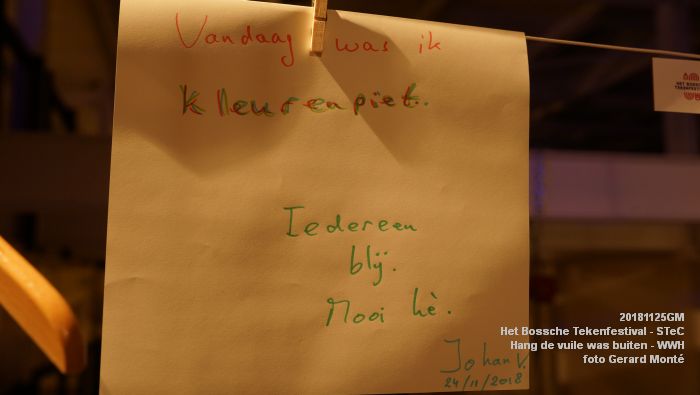 Vandaag was ik
Kleurenpiet.
Iedereen
blij.
Mooi hè.
Johan V.
24/11/2018
HET BOSSCHE
TEKENFESTIVAL
WWH
20181125GM
Het Bossche Tekenfestival - STeC
Hang de vuile was buiten - WWH
foto Gerard Monté